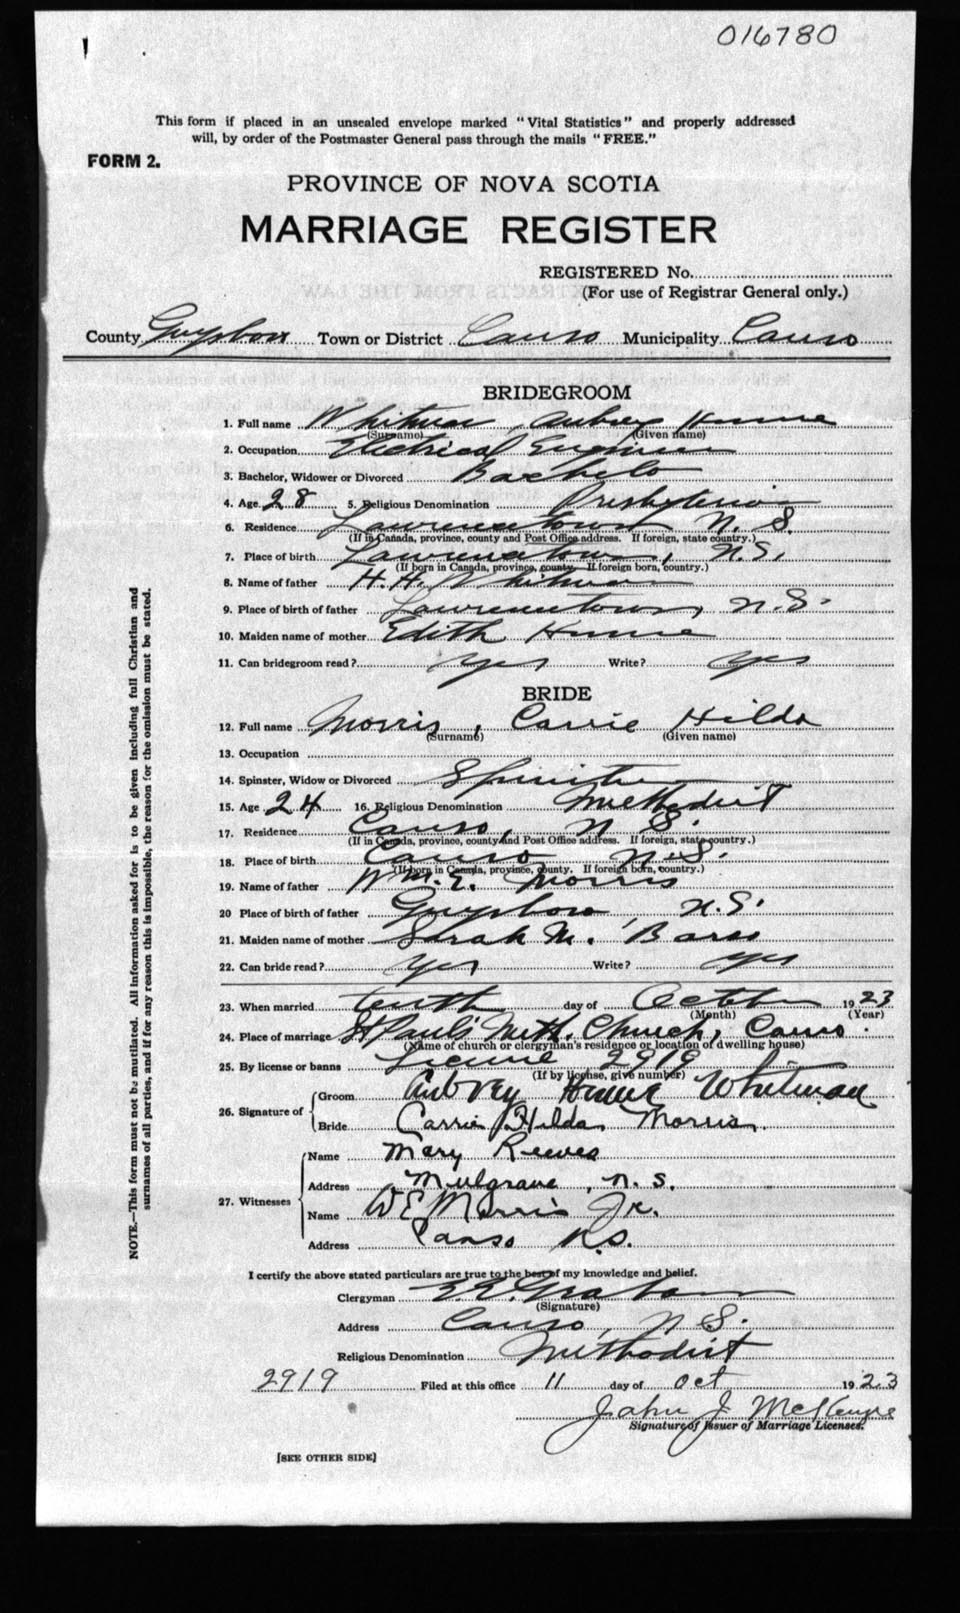 016780
This form if placed in an unsealed envelope marked "Vital Statistics" and properly addressed
will, by order of the Postmaster General pass through the mails "FREE."
FORM 2.
PROVINCE OF NOVA SCOTIA
MARRIAGE REGISTER
REGISTERED No.
(For use of Registrar General only.)
County Guysboro Town or District Canso Municipality Canso
BRIDEGROOM
1. Full name Whitman, Aubrey Hume
(Surname) (Given name)
2. Occupation Electrical Engineer
3. Bachelor, Widower or Divorced Bachelor
4. Age 28 5. Religious Denomination Presbyterian
6. Residence Lawrencetown N.S.
(If in Canada, province, county and Post Office address. If foreign, state country.)
7. Place of birth Lawrencetown, N.S.
(If born in Canada, province, county. If foreign born, country.)
8. Name of father H.H. Whitman
9. Place of birth of father Lawrencetown, N.S.
10. Maiden name of mother Edith Hume
11. Can bridegroom read? yes Write? yes
BRIDE
12. Full name Morris, Carrie Hilda
(Surname) (Given name)
13. Occupation
14. Spinster, Widow or Divorced Spinster
15. Age 24 16. Religious Denomination Methodist
17. Residence Canso, N.S.
(If in Canada, province, county and Post Office address. If foreign, state country.)
18. Place of birth Canso N.S.
(If born in Canada, province, county. If foreign born, country.)
19. Name of father Wm. E. Morris
20 Place of birth of father Guysboro, N.S.
21. Maiden name of mother Sarah M. Barss
22. Can bride read? yes Write? yes
23. When married tenth day of October 1923
(Month) (Year)
24. Place of marriage St Paul's Meth. Church, Canso.
(Name of church or clergyman's residence or location of dwelling house)
25. By license or banns License 2919
(If by license, give number)
26. Signature of Groom Aubrey Hume Whitman
Bride Carrie Hilda Morris.
27. Witnesses Name Mary Reeves
Address Mulgrave, N.S.
Name W E Morris Jr.
Address Canso N.S.
I certify the above stated particulars are true to the best of my knowledge and belief.
Clergyman Graham
(Signature)
Address Canso, N.S.
Religious Denomination Methodist
2919 Filed at this office 11 day of Oct 1923
John J McKenzie
Signature of Issuer of Marriage Licenses.
[SEE OTHER SIDE]
NOTE.—This form must not be mutilated. All information asked for is to be given including full Christian and
surnames of all parties, and if for any reason this is impossible, the reason for the omission must be stated.